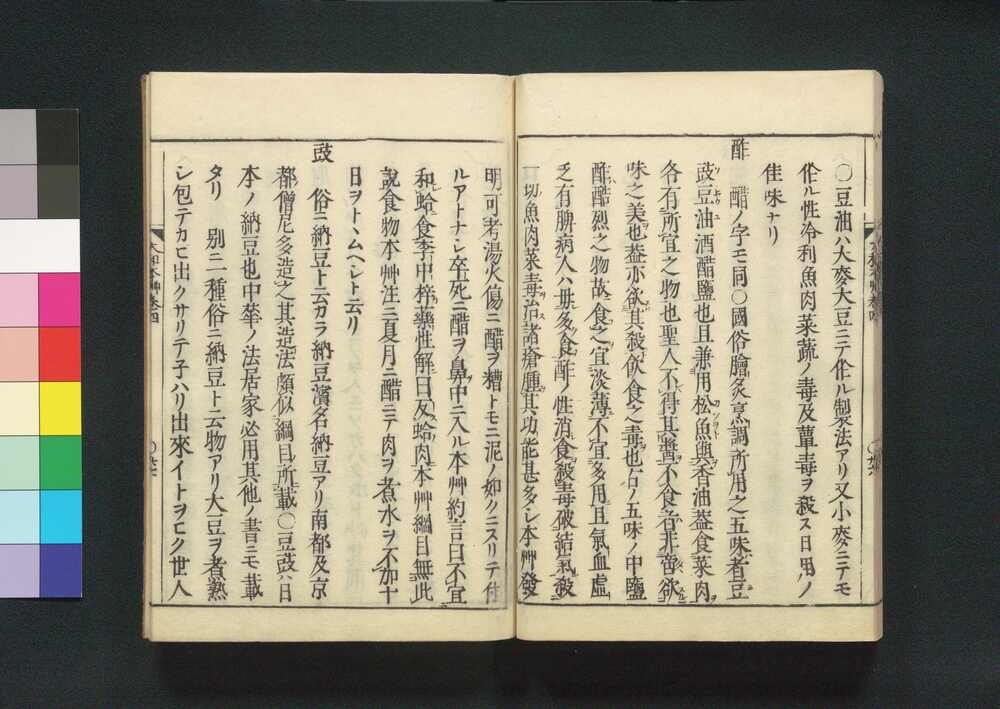 〇豆油ハ大麥大豆ニテ作ル製法アリ又小麥ニテモ
作ル性冷利魚肉菜蔬ノ毒及蕈毒ヲ殺ス日用ノ
佳味ナリ
酢 醋ノ字モ同〇國俗膾炙烹調所用之五味者豆
豉豆油酒醋鹽也且兼用松魚與香油蓋食菜肉
各有所宜之物也聖人不得其醬不食者非啻欲
味之美也蓋亦欲其殺飲食之毒也右ノ五味ノ中鹽
酢酷烈之物故食之宜淡薄不宜多用且氣血虛
乏有脾病人ハ毋多食酢ノ性消食殺毒破結氣殺
一切魚肉菜毒治諸瘡腫其功能甚多シ本艸發
明可考湯火傷ニ醋ヲ糟トモニ泥ノ如クニスリテ付
ルアトナシ卒死ニ醋ヲ鼻中ニ入ル本艸約言曰不宜
和蛤食李中梓藥性解曰反蛤肉本艸綱目無此
說食物本艸注ニ夏月ニ醋ニテ肉ヲ煮水ヲ不加十
日ヲトヽムヘシト云リ
豉 俗ニ納豆ト云カラ納豆濱名納豆アリ南都及京
都僧尼多造之其造法頗似綱目所載〇豆豉ハ日
本ノ納豆也中華ノ法居家必用其他ノ書ニモ載
タリ 別ニ一種俗ニ納豆ト云物アリ大豆ヲ煮熟
シ包テカビ出クサリテ子ハリ出來イトヲヒク世人
大和本艸卷四